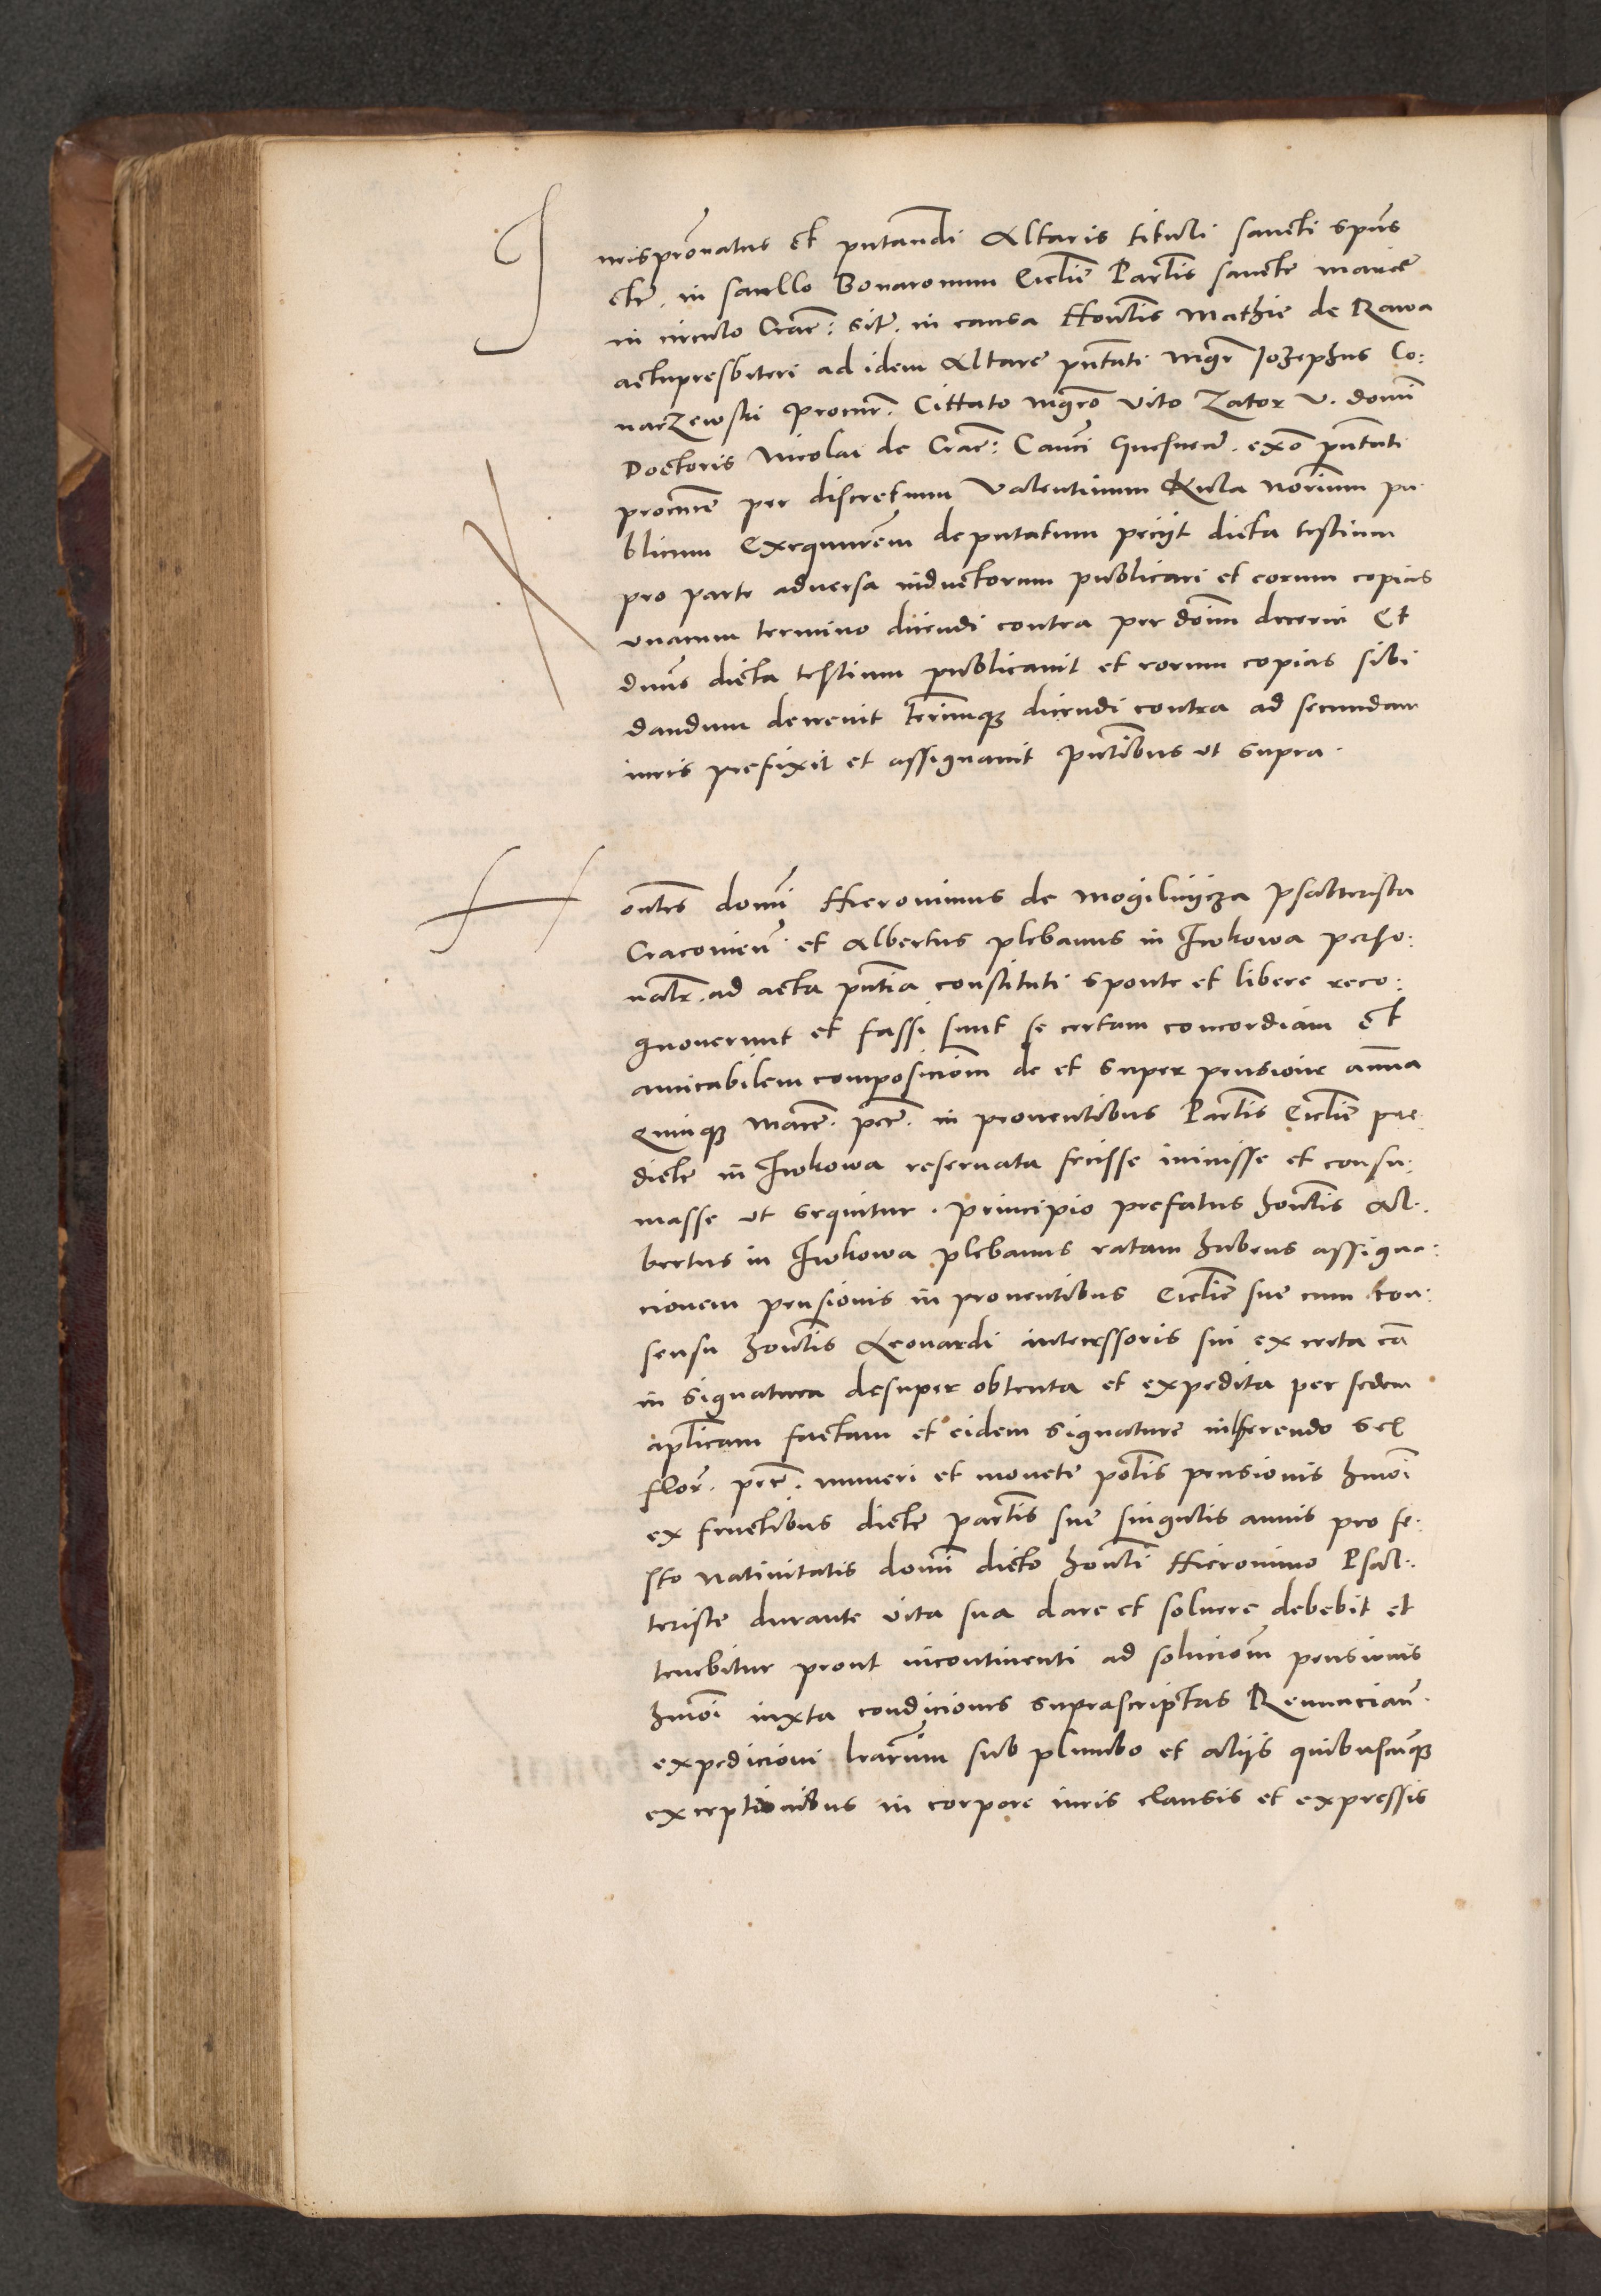 Jurispronatus et pntandi Altaris tituli sancti spus
etc. in sacello Bonaronum Ecclie Parlis sancte marie
in circulo Crac: sit. in causa Honlis Mathie de Rawa
actupresbiteri ad idem Altare pntati mgr Jozephus Co:
narzewski procur. Cittato mgro Vito Zator v. domi
Doctoris Nicolai de Crac: Canci Gnesnen. exo pntati
procuce per discretum Valentinum Kula norium pu
blicum Exequurem deputatum peciit dicta testium
pro parte adversa inductorum publicari et eorum copias
unacum termino dicendi contra per doim decerni Et
dnus dicta testium publicavit et eorum copias sibi
dandum decrevit terimque dicendi contra ad secundam
iuris prefixit et assignavit pntibus ut supra.
Honles domi Hieronimus de Mogilnycza psalterista
Cracovien. et Albertus plebanus in Iwkowa perso:
nalr. ad acta pntia constituti sponte et libere reco:
gnoverunt et fassi sunt se certam concordiam Et
amicabilem composiciom de et super pensione anna
Quinque Marc. pec. in proventibus Parlis Ecclie pre
dicte in Iwkowa reservata fecisse iniuisse et consu:
masse ut sequitur. principio prefatus honlis Al:
bertus in Iwkowa plebanus ratam habens assigna:
cionem pensionis in proventibus Ecclie sue cum con:
sensu honlis Leonardi antecessoris sui ex certa ca
in signatura desuper obtenta et expedita per sedem
aplicam factam et eidem signature inherendo sex
flor. pec. numeri et monete polis pensionis hmoi
ex fructibus dicte parlis sue singulis annis pro fe:
sto nativitatis domi dicto honli Hieronimo Psal:
teriste durante vita sua dare et solvere debebit et
tenebitur prout incontinenti ad soluciom pensionis
hmoi iuxta condiciones suprascriptas Renuncian.
expedicioni lrarum sub plumbo et aliis quibuscunque
exceptionibus in corpore iuris clausis et expressis